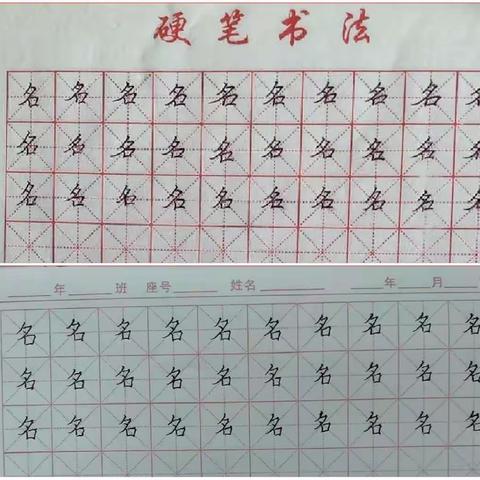 硬笔书法
名名名名名名名名名名
名名名名名名名名名名
名名名名名名名名名名
年 班 座号 姓名 年 月
名名名名名名名名名名
名名名名名名名名名名
名名名名名名名名名名